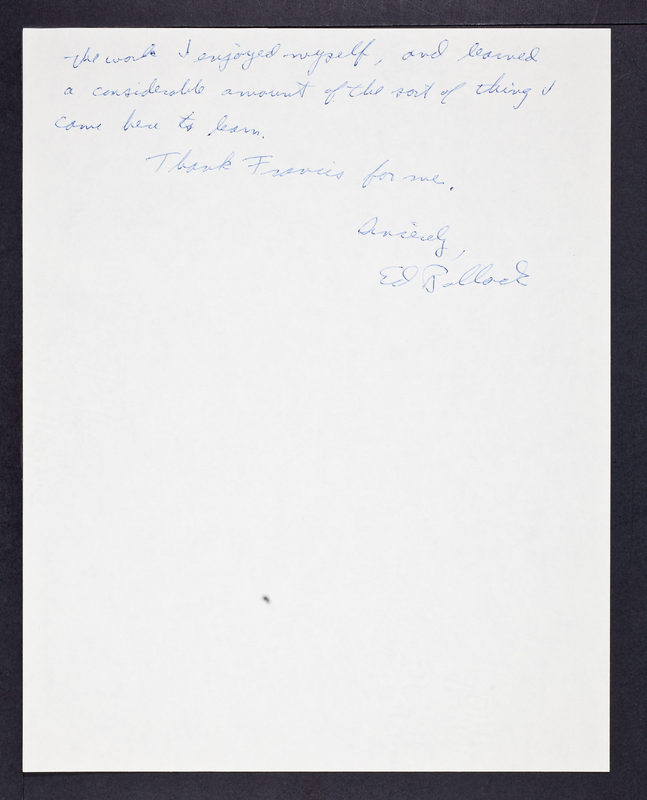 the work I enjoyed myself, and learned
a considerable amount of the sort of thing I
came here to learn.
Thank Francis for me.
Sincerely,
Ed Pollock